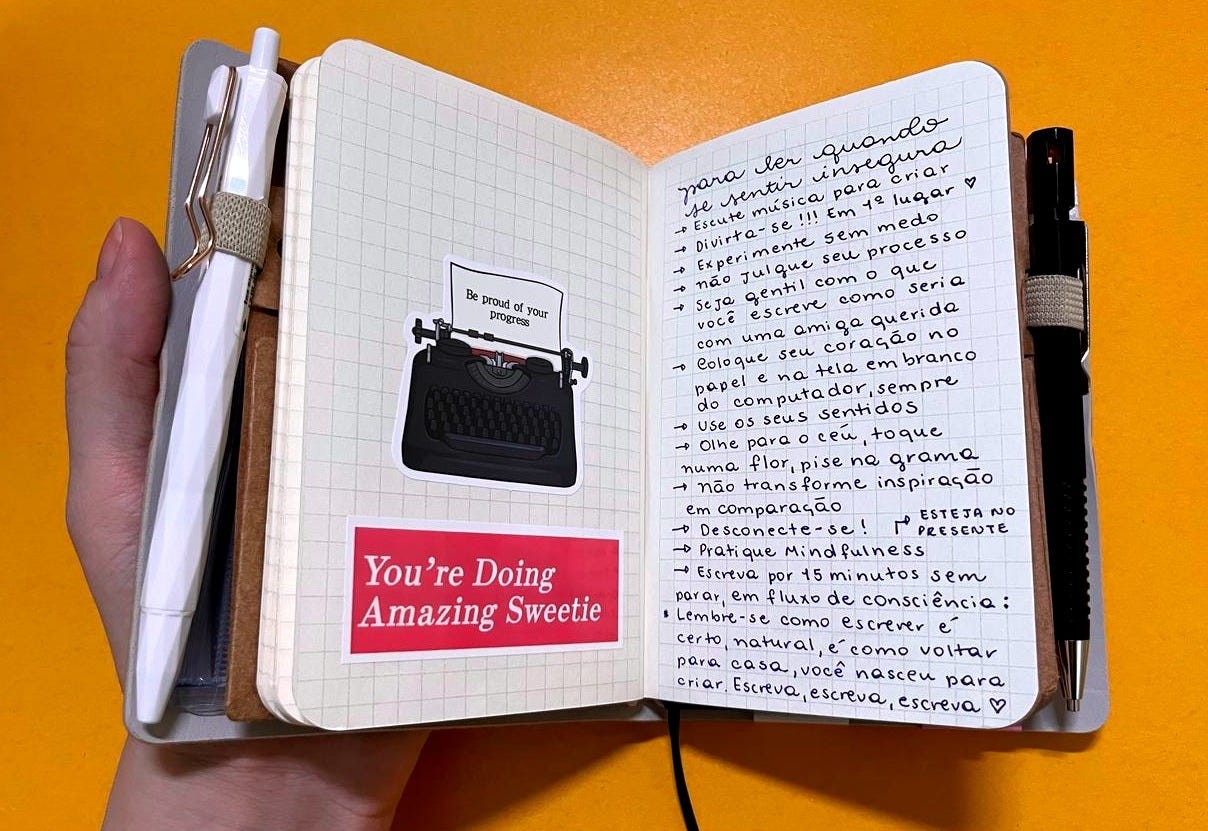 Be proud of your
progress
You're Doing
Amazing Sweetie
para ler quando
se sentir insegura
→ Escute música para criar
→ Divirta-se!!! Em 1º lugar ♡
→ Experimente sem medo
→ não julgue seu processo
→ Seja gentil com o que
você escreve como seria
com uma amiga querida
→ Coloque seu coração no
papel e na tela em branco
do computador, sempre
→ Use os seus sentidos
→ Olhe para o céu, toque
numa flor, pise na grama
→ não transforme inspiração
em comparação
→ Desconecte-se! ↱ ESTEJA NO
PRESENTE
→ Pratique Mindfulness
→ Escreva por 15 minutos sem
parar, em fluxo de consciência:
• Lembre-se como escrever é
certo, natural, é como voltar
para casa, você nasceu para
criar. Escreva, escreva, escreva ♡